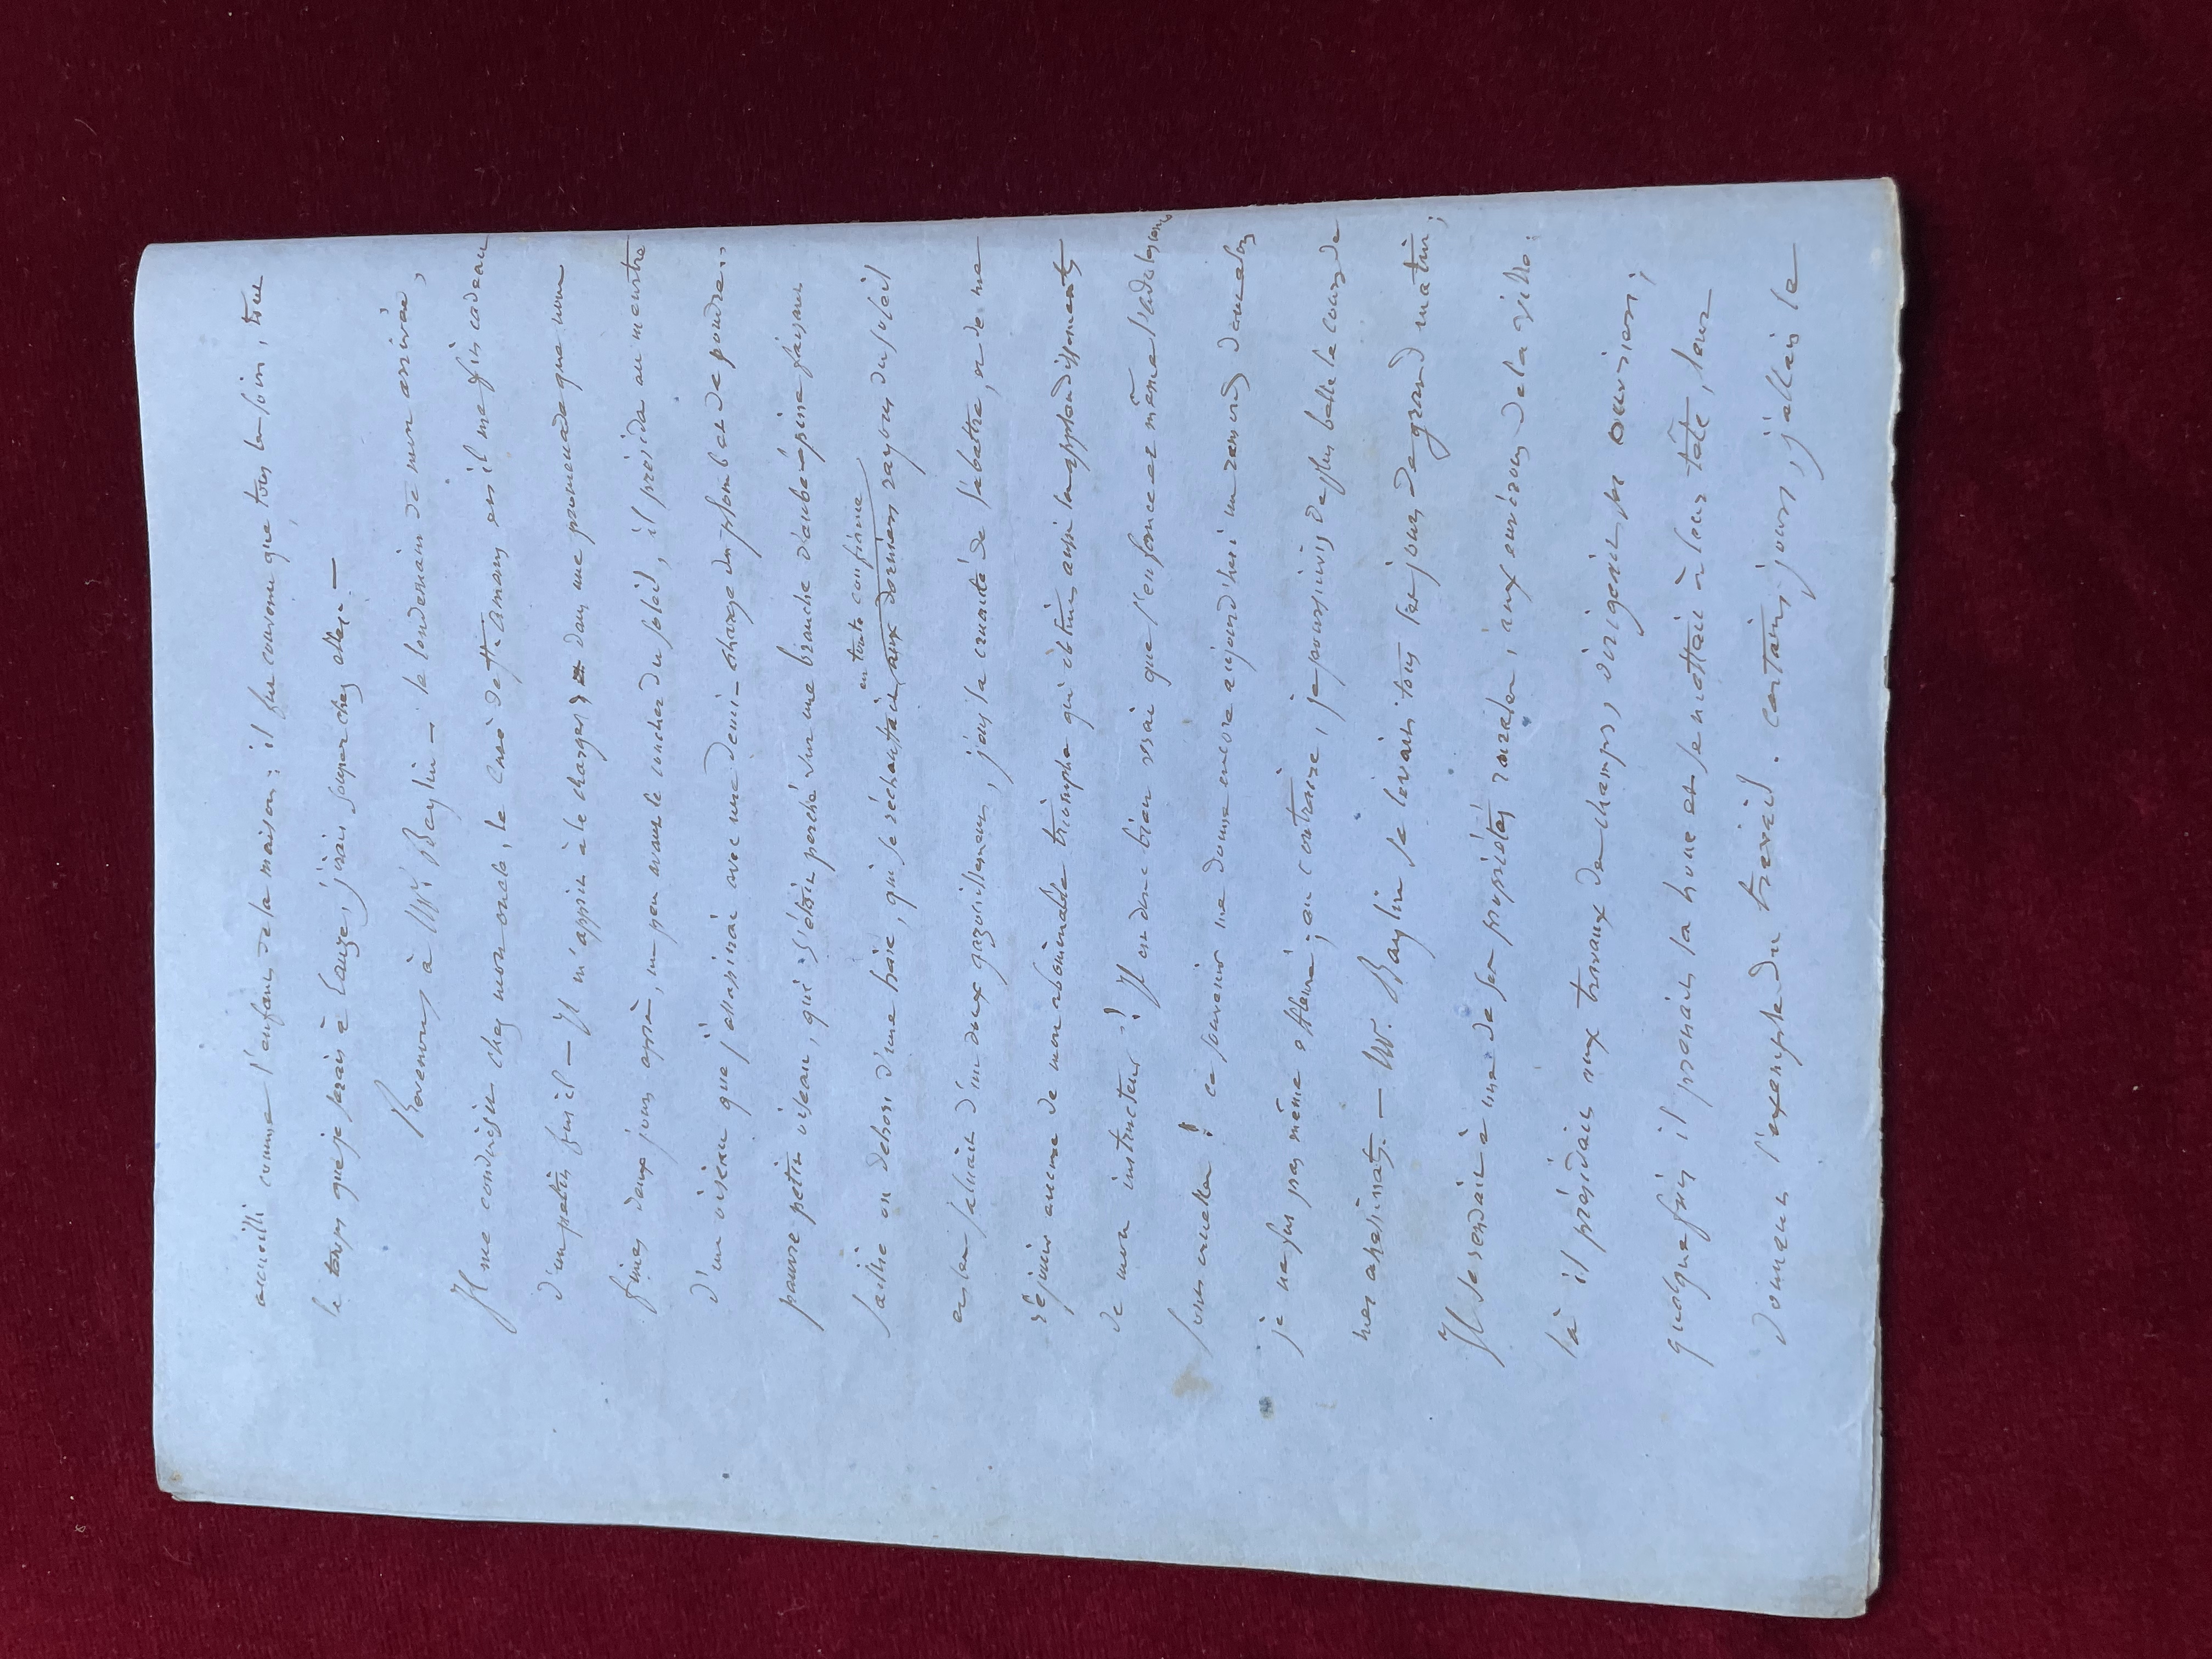 accueilli comme l'enfant de la maison : il fut convenu que tous les soirs, tout
le temps que je serais à Lauze, j'irais souper chez elles. —
Revenons à Mr Baylin — le lendemain de mon arrivée,
Il me conduisit chez mon oncle, le Curé de St. Amans et il me fit cadeau
d'un petit fusil — Il m'apprit à le charger dans une promenade que nous
fimes deux jours après, un peu avant le coucher du soleil, il présida au meurtre
d'un oiseau que j'assassinai avec une demi-charge du plomb et de poudre..
pauvre petit oiseau, qui s'était perché sur une branche d'aubépine faisant
en toute confiance
saillie en dehors d'une haie, qui se réchauffait aux derniers rayons du soleil
et les saluait d'un doux gazouillement, j'eus la cruauté de l'abattre, et de me
réjouir encore de mon abominable triomphe qui obtint aussi les applaudissements
de mon instructeur ! Il est donc bien vrai que l'enfance et même l'adolescence
sont cruelles ! ce souvenir me donne encore aujourd'hui un remords dont alors
je ne fus pas même effleuré ; au contraire, je poursuivis de plus belle le cours de
mes assassinats. — Mr. Baylin se levait tous les jours de grand matin ;
Il se rendait à une de ses propriétés rurales, aux environs de la ville :
là il présidait aux travaux des champs, dirigeait les ouvriers ;
quelquefois il prenait la houe et se mettait à leur tête, leur
donnant l'exemple du travail. Certains jours, j'allais le